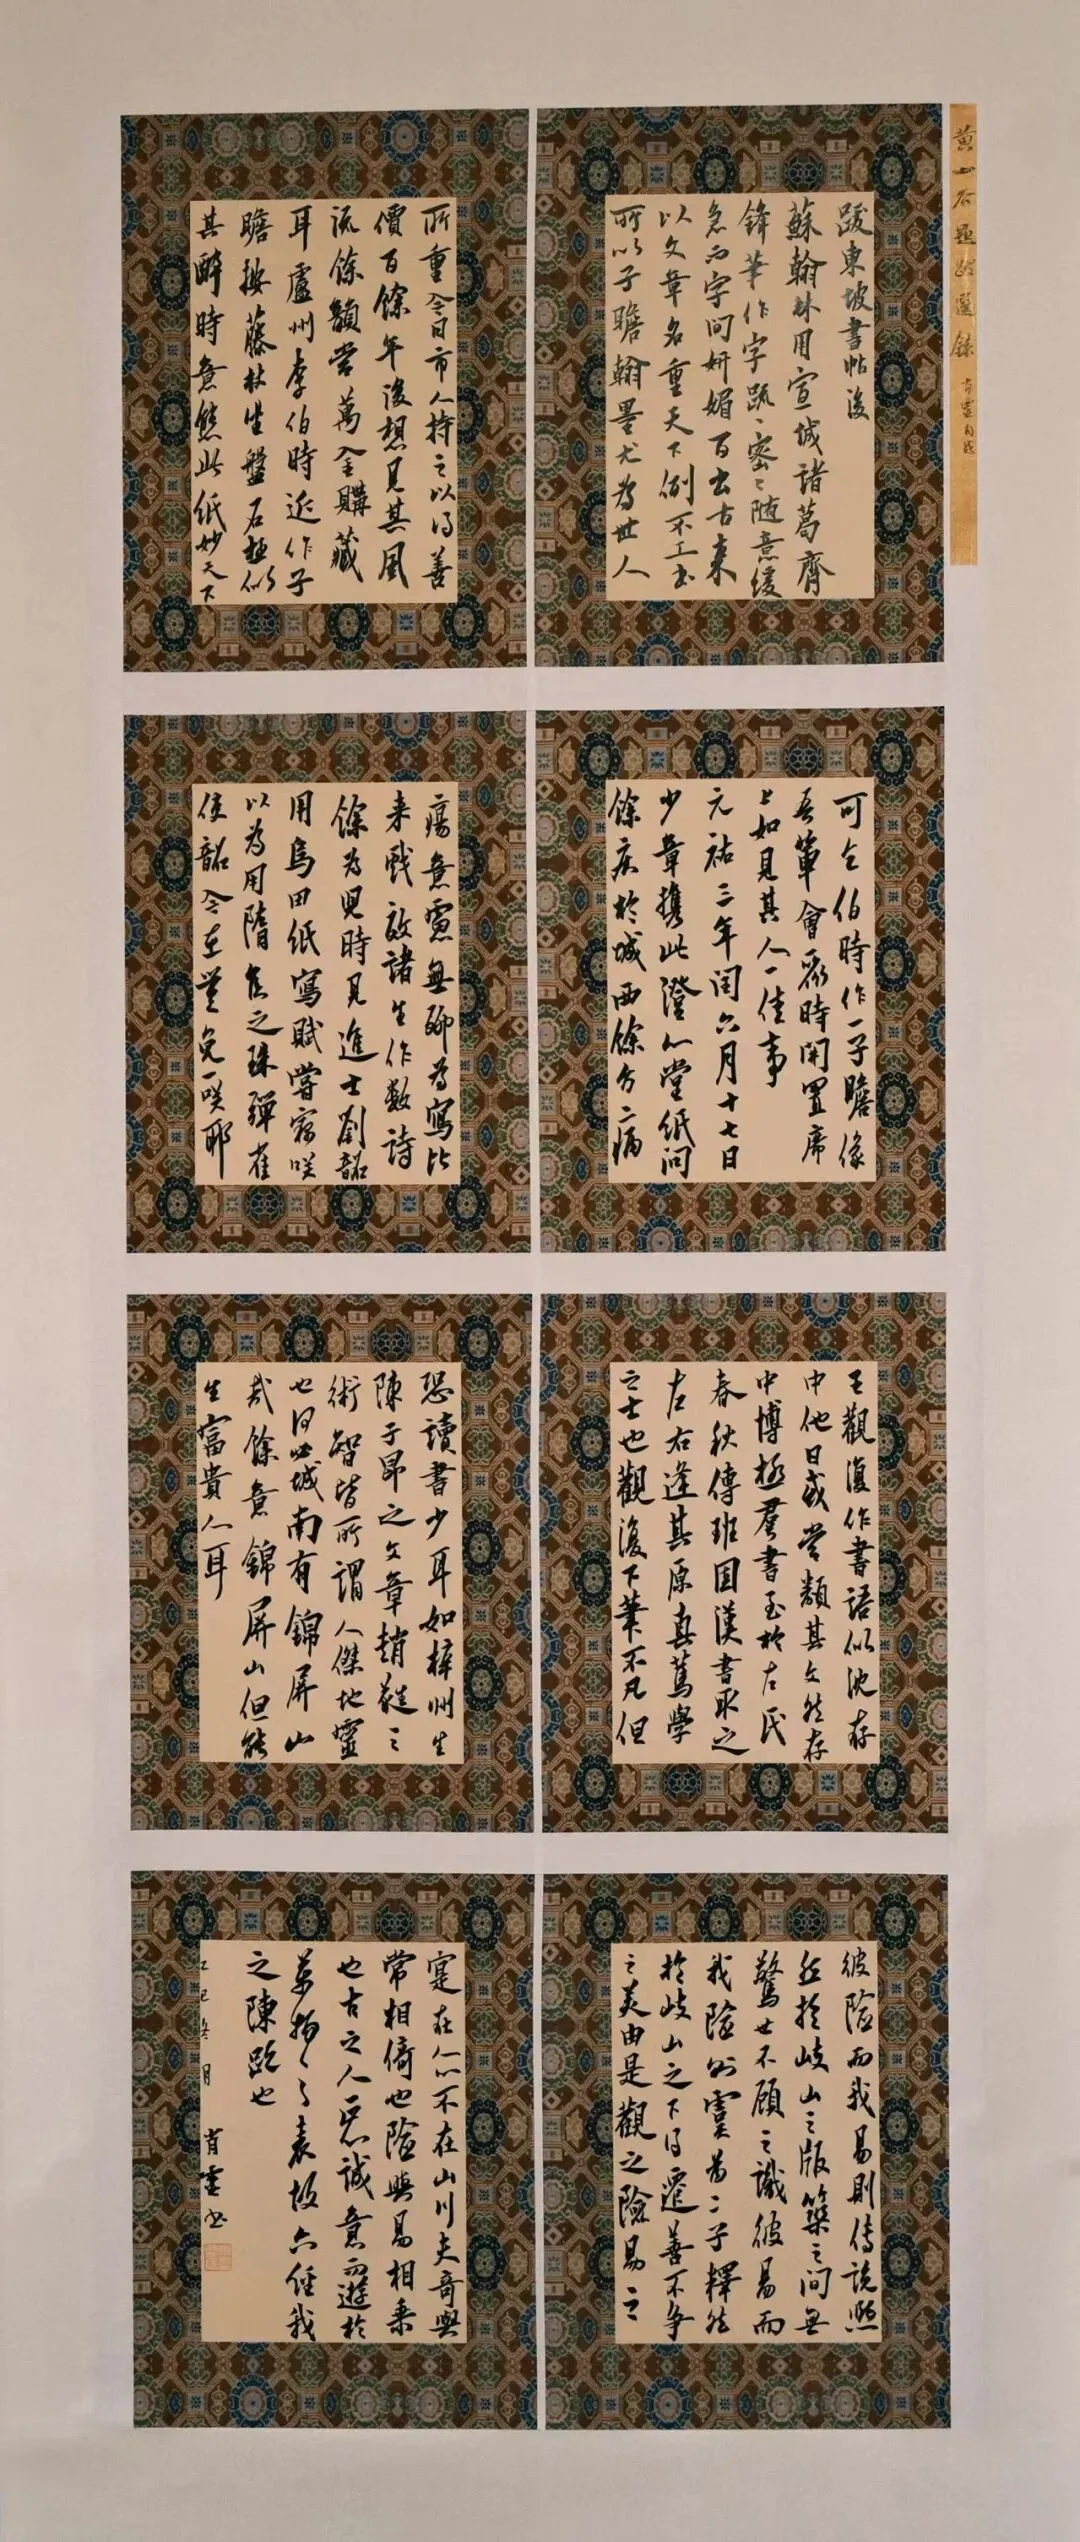 黄山谷題跋選錄 肯靈自題
跋東坡書帖後
蘇翰林用宣城諸葛齊
鋒筆作字疏疏密密隨意緩
急而字間妍媚百出古来
以文章名重天下例不工書
所以子瞻翰墨尤為世人
所重今日市人持之以得善
價百餘年後想見其風
流餘韻當萬金購藏
耳盧州李伯時近作子
瞻按藤杖坐盤石極似
其醉時意態此紙妙天下
可乞伯時作一子瞻像
吾輩會聚時開置席
上如見其人一佳事
元祐三年閏六月十七日
少章携此澄心堂紙問
餘疾於城西餘方二病
瘍意慮無聊為寫比
来戲效諸生作數詩
餘為兒時見進士劉韶
用烏田紙寫賦嘗竊笑
以為用隋矦之珠弹雀
使韶今在豈免一笑耶
王觀復作書語似沈存
中他日或當類其文然存
中博極羣書至於左氏
春秋傳班固漢書取之
左右逢其原真篤學
之士也觀復下筆不凡但
恐讀書少耳如梓州生
陳子昂之文章趙蕤之
術智皆所謂人傑地靈
也何必城南有錦屏山
哉餘意錦屏山但能
生富貴人耳
彼險而我易則傅説熙
丘於岐山之版築之間無
驚世不顧之譏彼易而
我險則虞芮二子釋然
於岐山之下得遷善不争
之美由是觀之險易之
寔在人心不在山川夫奇與
常相倚也險與易相乘
也古之人一忘誠意而遊於
萬物之表故六經我
之陳跡也
乙巳冬月 肯靈書